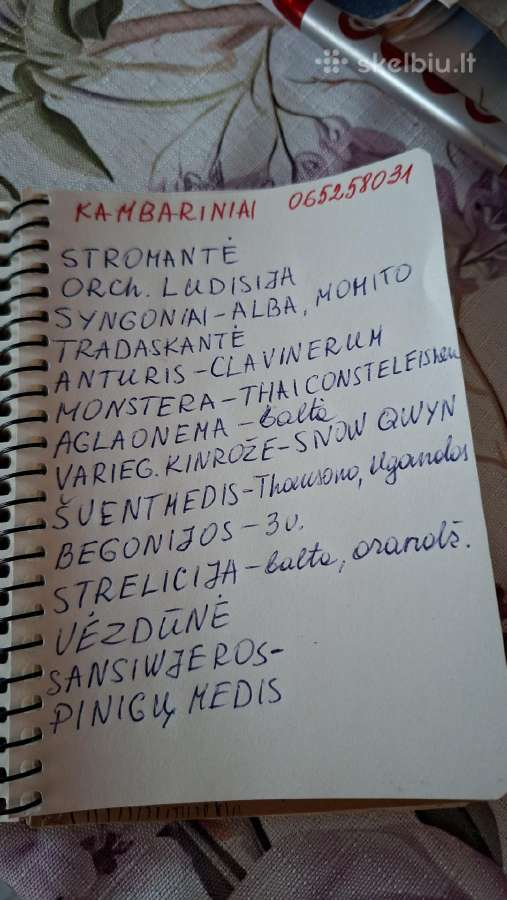 skelbiu.lt
KAMBARINIAI 065258031
STROMANTĖ
ORCh. LUDISIJA
SYNGONIAI-ALBA, MOHITO
TRADASKANTĖ
ANTURIS-CLAVINERUM
MONSTERA-THAI CONSTELEISHEN
AGLAONEMA-balta
VARIEG. KINROŽE-SNOW QWYN
ŠVENTMEDIS-Thomsono, Ugandos
BEGONIJOS-3v.
STRELICIJA-balta, orandž.
VĖZDŪNĖ
SANSIWJEROS-
PINIGŲ MEDIS